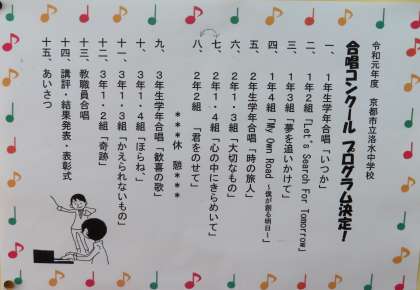 令和元年度　京都市立洛水中学校
合唱コンクール プログラム決定！
一、１年生学年合唱「いつか」
二、１年２組「Let's Search For Tomorrow」
三、１年３組「夢を追いかけて」
四、１年４組「My Own Road ～僕が創る明日～」
五、２年生学年合唱「時の旅人」
六、２年１・３組「大切なもの」
七、２年１・４組「心の中にきらめいて」
八、２年２組　「君をのせて」
＊＊＊休　憩＊＊＊
九、３年生学年合唱「歓喜の歌」
十、３年１・４組「ほらね、」
十一、３年１・３組「かえられないもの」
十二、３年１・２組「奇跡」
十三、教職員合唱
十四、講評・結果発表・表彰式
十五、あいさつ